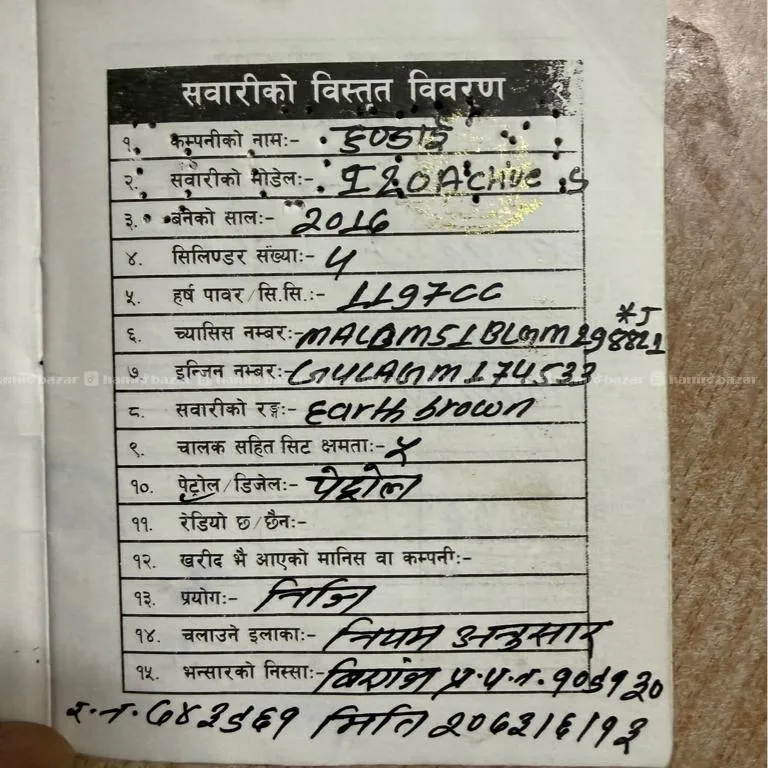 सवारीको विस्तृत विवरण
१. कम्पनीको नाम:- हुण्डाई
२. सवारीको मोडेल:- I20 Active S
३. बनेको साल:- 2016
४. सिलिण्डर संख्या:- 4
५. हर्ष पावर/सि.सि.:- 1197CC
*J
६. च्यासिस नम्बर:- MALBM51BLGM298821
७. इन्जिन नम्बर:- G4LAGM174533
hamrobazar hamrobazar
८. सवारीको रङ्ग:- Earth brown
९. चालक सहित सिट क्षमता:- ५
१०. पेट्रोल/डिजेल:- पेट्रोल
११. रेडियो छ/छैन:-
१२. खरीद भै आएको मानिस वा कम्पनी:-
१३. प्रयोग:- निजि
१४. चलाउने इलाका:- नियम अनुसार
१५. भन्सारको निस्सा:- प्र.प.न.
मिति